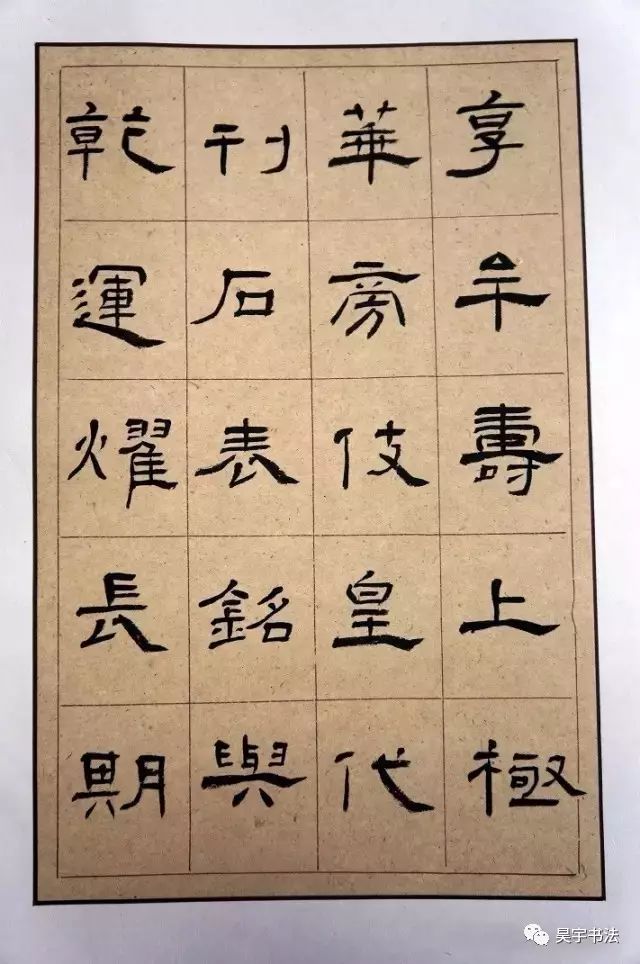 享牟壽上極
華旁伎皇代
刊石表銘與
乾運燿長期
昊宇书法